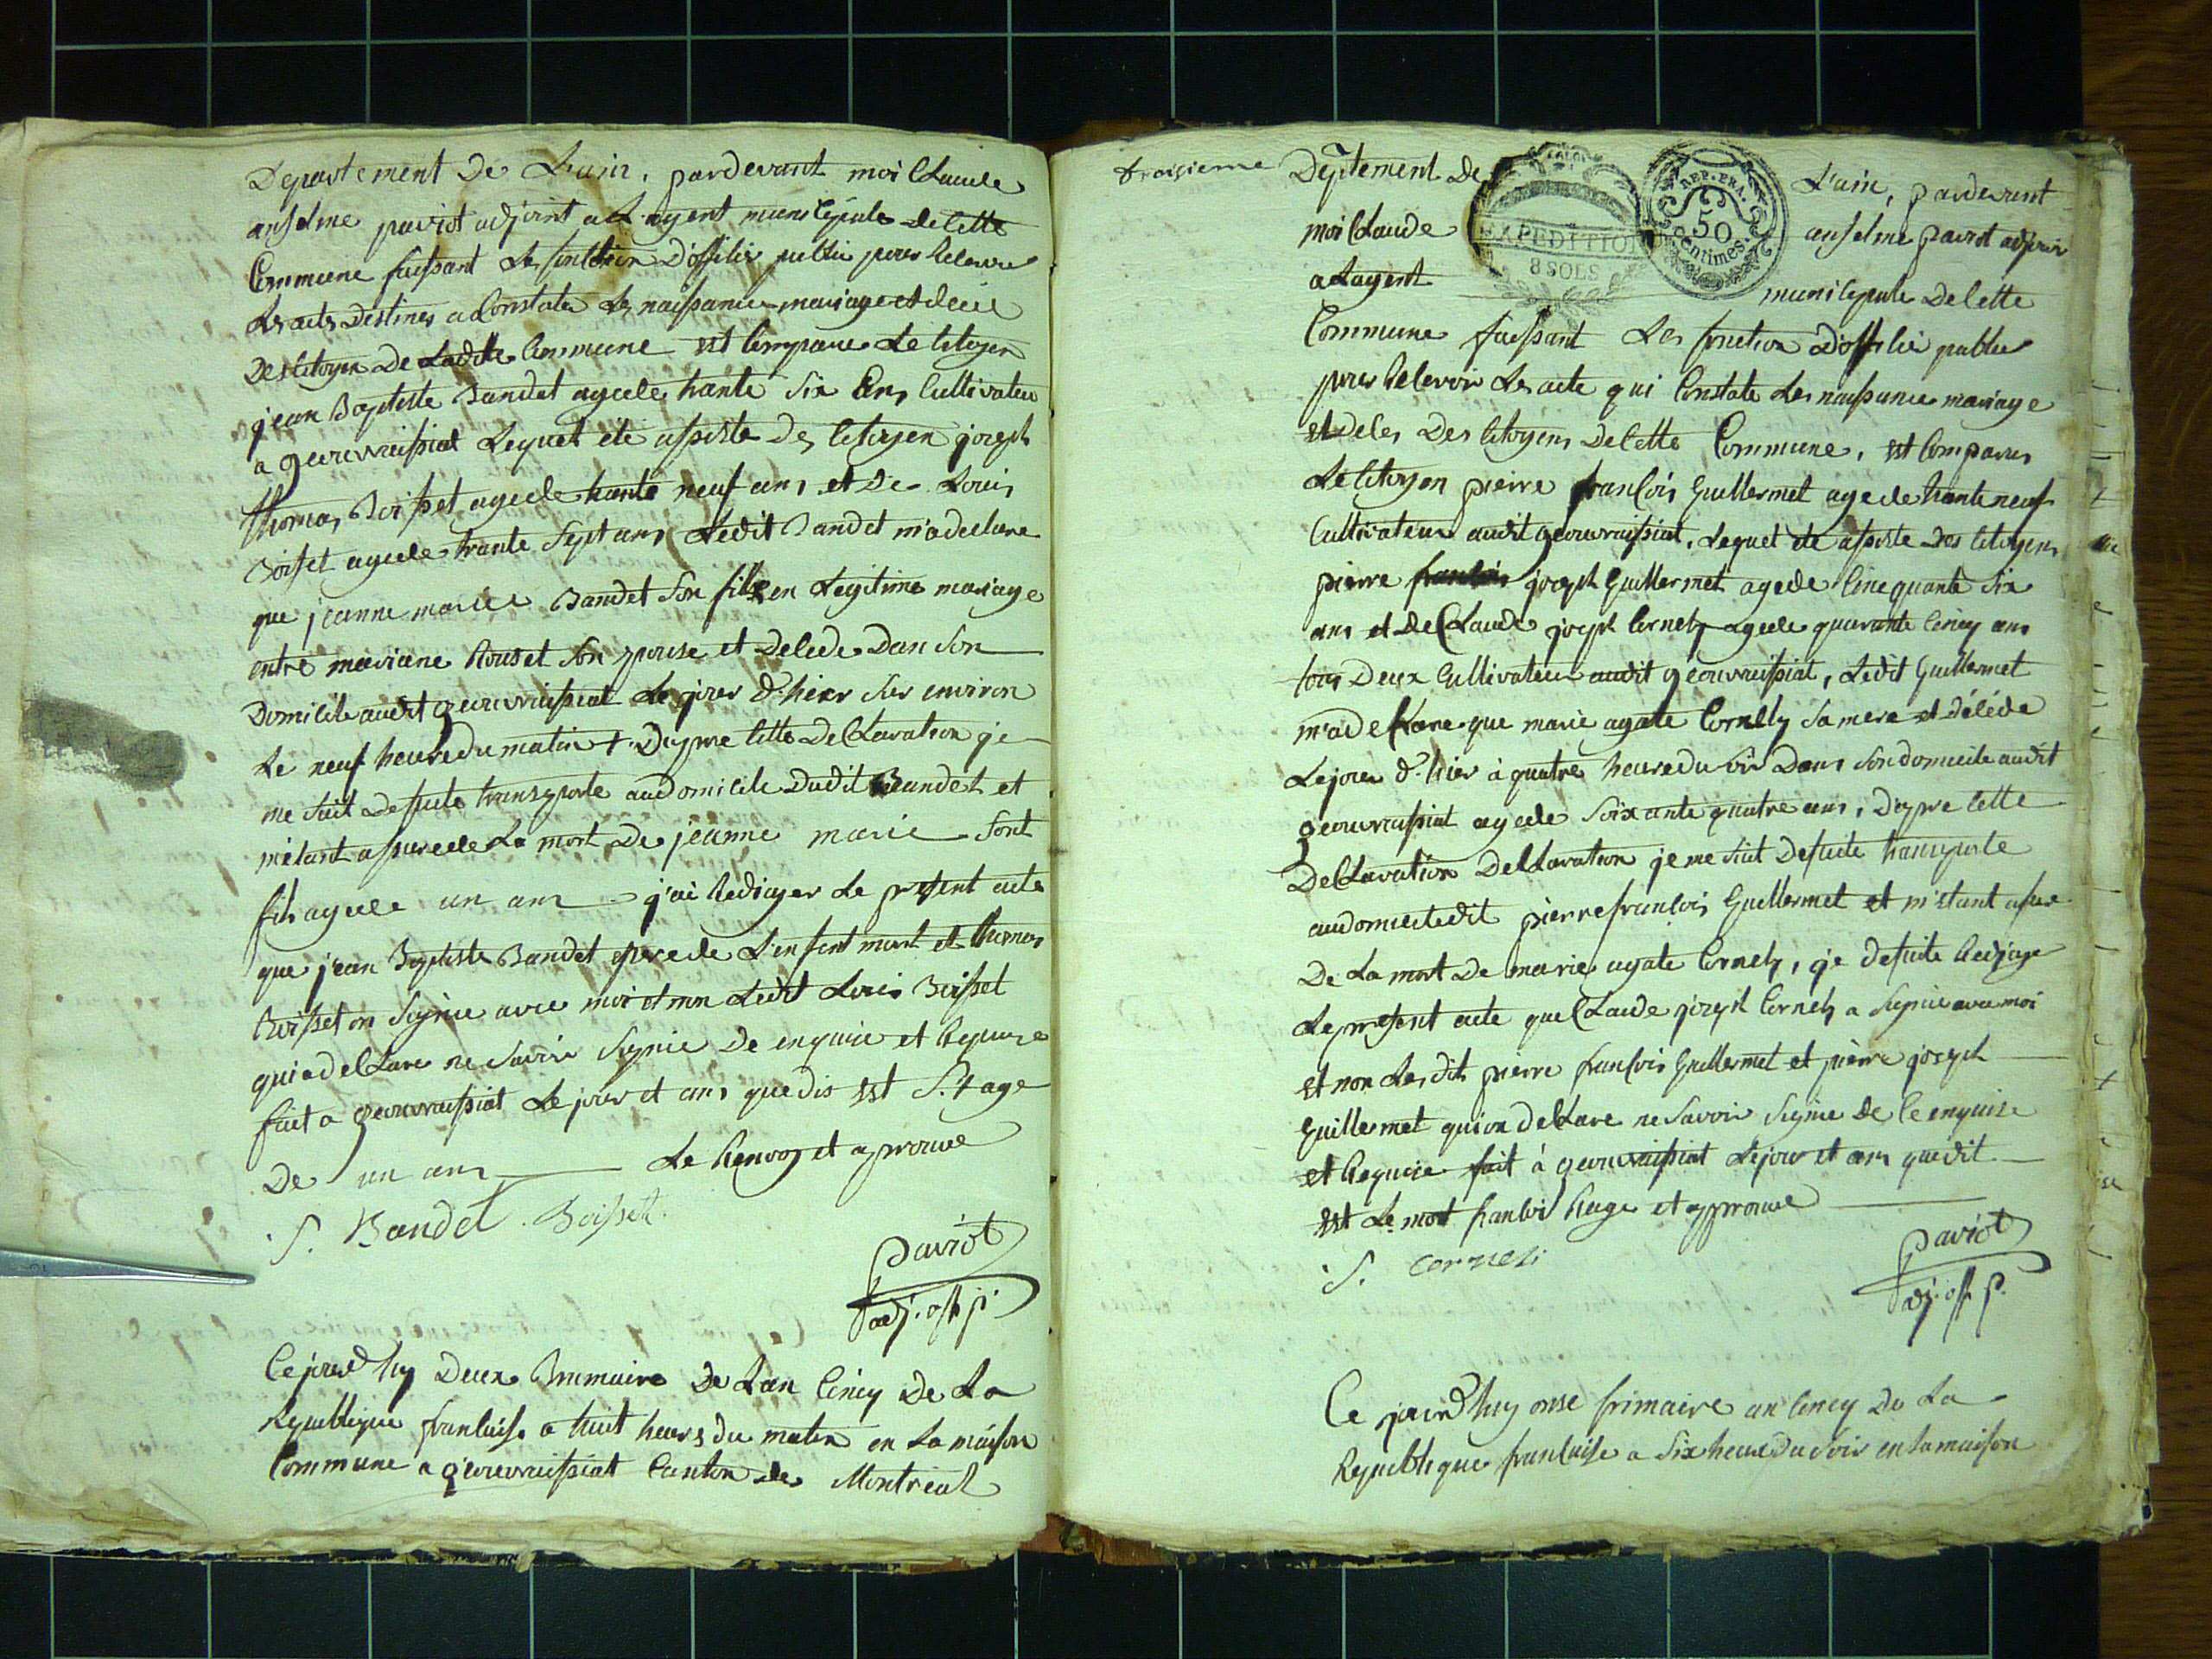 Departement De L'ain, pardevant moi Claude
anselme paviot adjoint a L'agent municipale de Cette
Commune faissant Les fonction D'offilier public pour Relevoir
Les acts Destines a Constater Les naissance mariage et decée
Des Citoyen De Ladite Commune est Comparue Le Citoyen
jean Baptiste Bandet agé de trante Six Ans Cultivateur
a geouvraissiat Lequel été assiste Des Citoyen joseph
thomas Boisset agé de trante neuf ans et De Louis
Boisset agé de trante Sept ans Ledit Bandet m'a declare
que jeanne marie Bandet Son fille en Legitime mariage
entre mariane Rousset Son epouse et Deledé Dan Son
Domicile audit geouvraissiat Le jour d'hier Sur environ
Le neuf heure du matin + Dapre Cette DeClaration je
me Suit De suite transporte au Domicile Dudit Bandet et
m'étant assure de La mort De jeanne marie Sont
fils agé de un ans j'ai Rediger Le present acte
que jean Baptiste Bandet pere de L'enfent mort et thomas
Boisset on Signie avec moi et non Ledit Louis Boisset
qui a delLare ne Savoir Signie De enquie et Requie
fait a geouvraissiat Le jour et ans que dis est S. + age
De un ans Le Renvoy et aprouve
S. Bandet . Boisset.
paviot
adj. off. p.
Ce jourd'huy Deux Brumaire De Lan Cinq De La
Republique franlaise a huit heurs du matin en La maison
Commune a geouvraissiat Canton de Montreal
troisieme
Deptement De L'ain, pardevant
moi Claude anselme paviot adjoin
a Lagent municipale De Cette
EXPEDITION
8 SOLS
REP. FRA.
50
Centimes
Commune faissant Les fonction D'offilie public
pour Relevoir Les acte qui Constate Les naissance mariage
et deles Des Citoyens De Cette Commune, est Comparus
Le Citoyen pierre franlois Guillermet agé de trante neuf
Cultivateur audit geouvraissiat, Lequel été assiste Des Citoyens
pierre franlois joseph Guillermet age de Cinequante Six
ans et De Claude joseph Cornely agé de quarante Cinq ans
tous Deux Cultivateur audit geouvraissiat, Ledit Guillermet
m'a declare que marie agate Cornely Sa mere et Délédé
Le jour d'hier à quatre heure du soir Dans Son domicile audit
geouvraissiat agé de Soixante quatre ans, Dapre Cette
DelLaration DelLaration je me Suit Desuite transporte
au domicile dit pierre franlois Guillermet et m'étant assure
De La mort De marie agate Cornely, je desuite Redige
Le present acte que Claude joseph Cornely a Signie avec moi
et non Les dits pierre franlois Guillermet et pierre joseph
Guillermet qui on delLare ne Savoir Signie de Ce enquise
et Requie fait à geouvraissiat Le jour et ans que dit
est Le mot franlois Raye et approuve
S. Corneli
paviot
adj. off. p.
Ce jourd'huy onse frimaire an Cinq De La
Republique franlaise a Six heure Du Soir en La maison